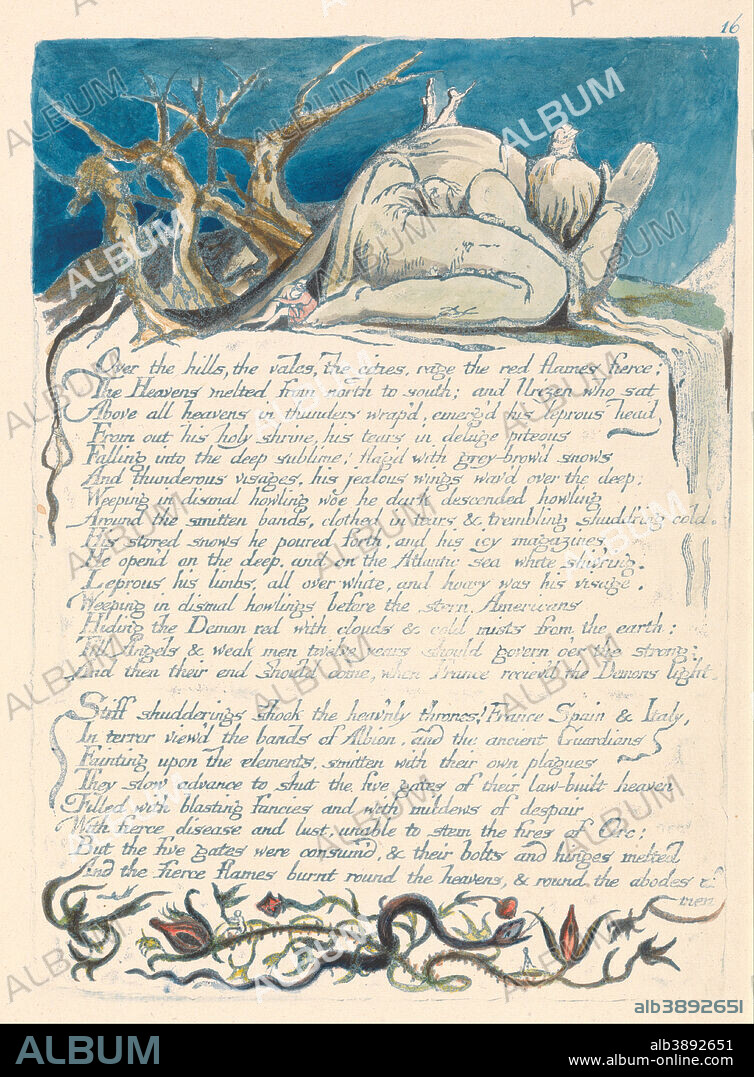 16
Over the hills, the vales, the cities, rage the red flames fierce:
The Heavens melted from north to south; and Urizen who sat
Above all heavens in thunders wrap'd, emerg'd his leprous head
From out his holy shrine, his tears in deluge piteous
Falling into the deep sublime! flag'd with grey-brow'd snows
And thunderous visages, his jealous wings wav'd over the deep;
Weeping in dismal howling woe he dark descended howling
Around the smitten bands, clothed in tears & trembling shudd'ring cold.
His stored snows he poured forth, and his icy magazines
He open'd on the deep, and on the Atlantic sea white shiv'ring.
Leprous his limbs, all over white, and hoary was his visage.
Weeping in dismal howlings before the stern Americans
Hiding the Demon red with clouds & cold mists from the earth:
Till Angels & weak men twelve years should govern o'er the strong:
And then their end should come, when France reciev'd the Demons light.
Stiff shudderings shook the heav'nly thrones! France Spain & Italy,
In terror view'd the bands of Albion, and the ancient Guardians
Fainting upon the elements, smitten with their own plagues
They slow advance to shut the five gates of their law-built heaven
Filled with blasting fancies and with mildews of despair
With fierce disease and lust, unable to stem the fires of Orc;
But the five gates were consum'd, & their bolts and hinges melted
And the fierce flames burnt round the heavens, & round the abodes of
men
ALBUM
alb3892651
ALBUM
alb3892651
www.album-online.com